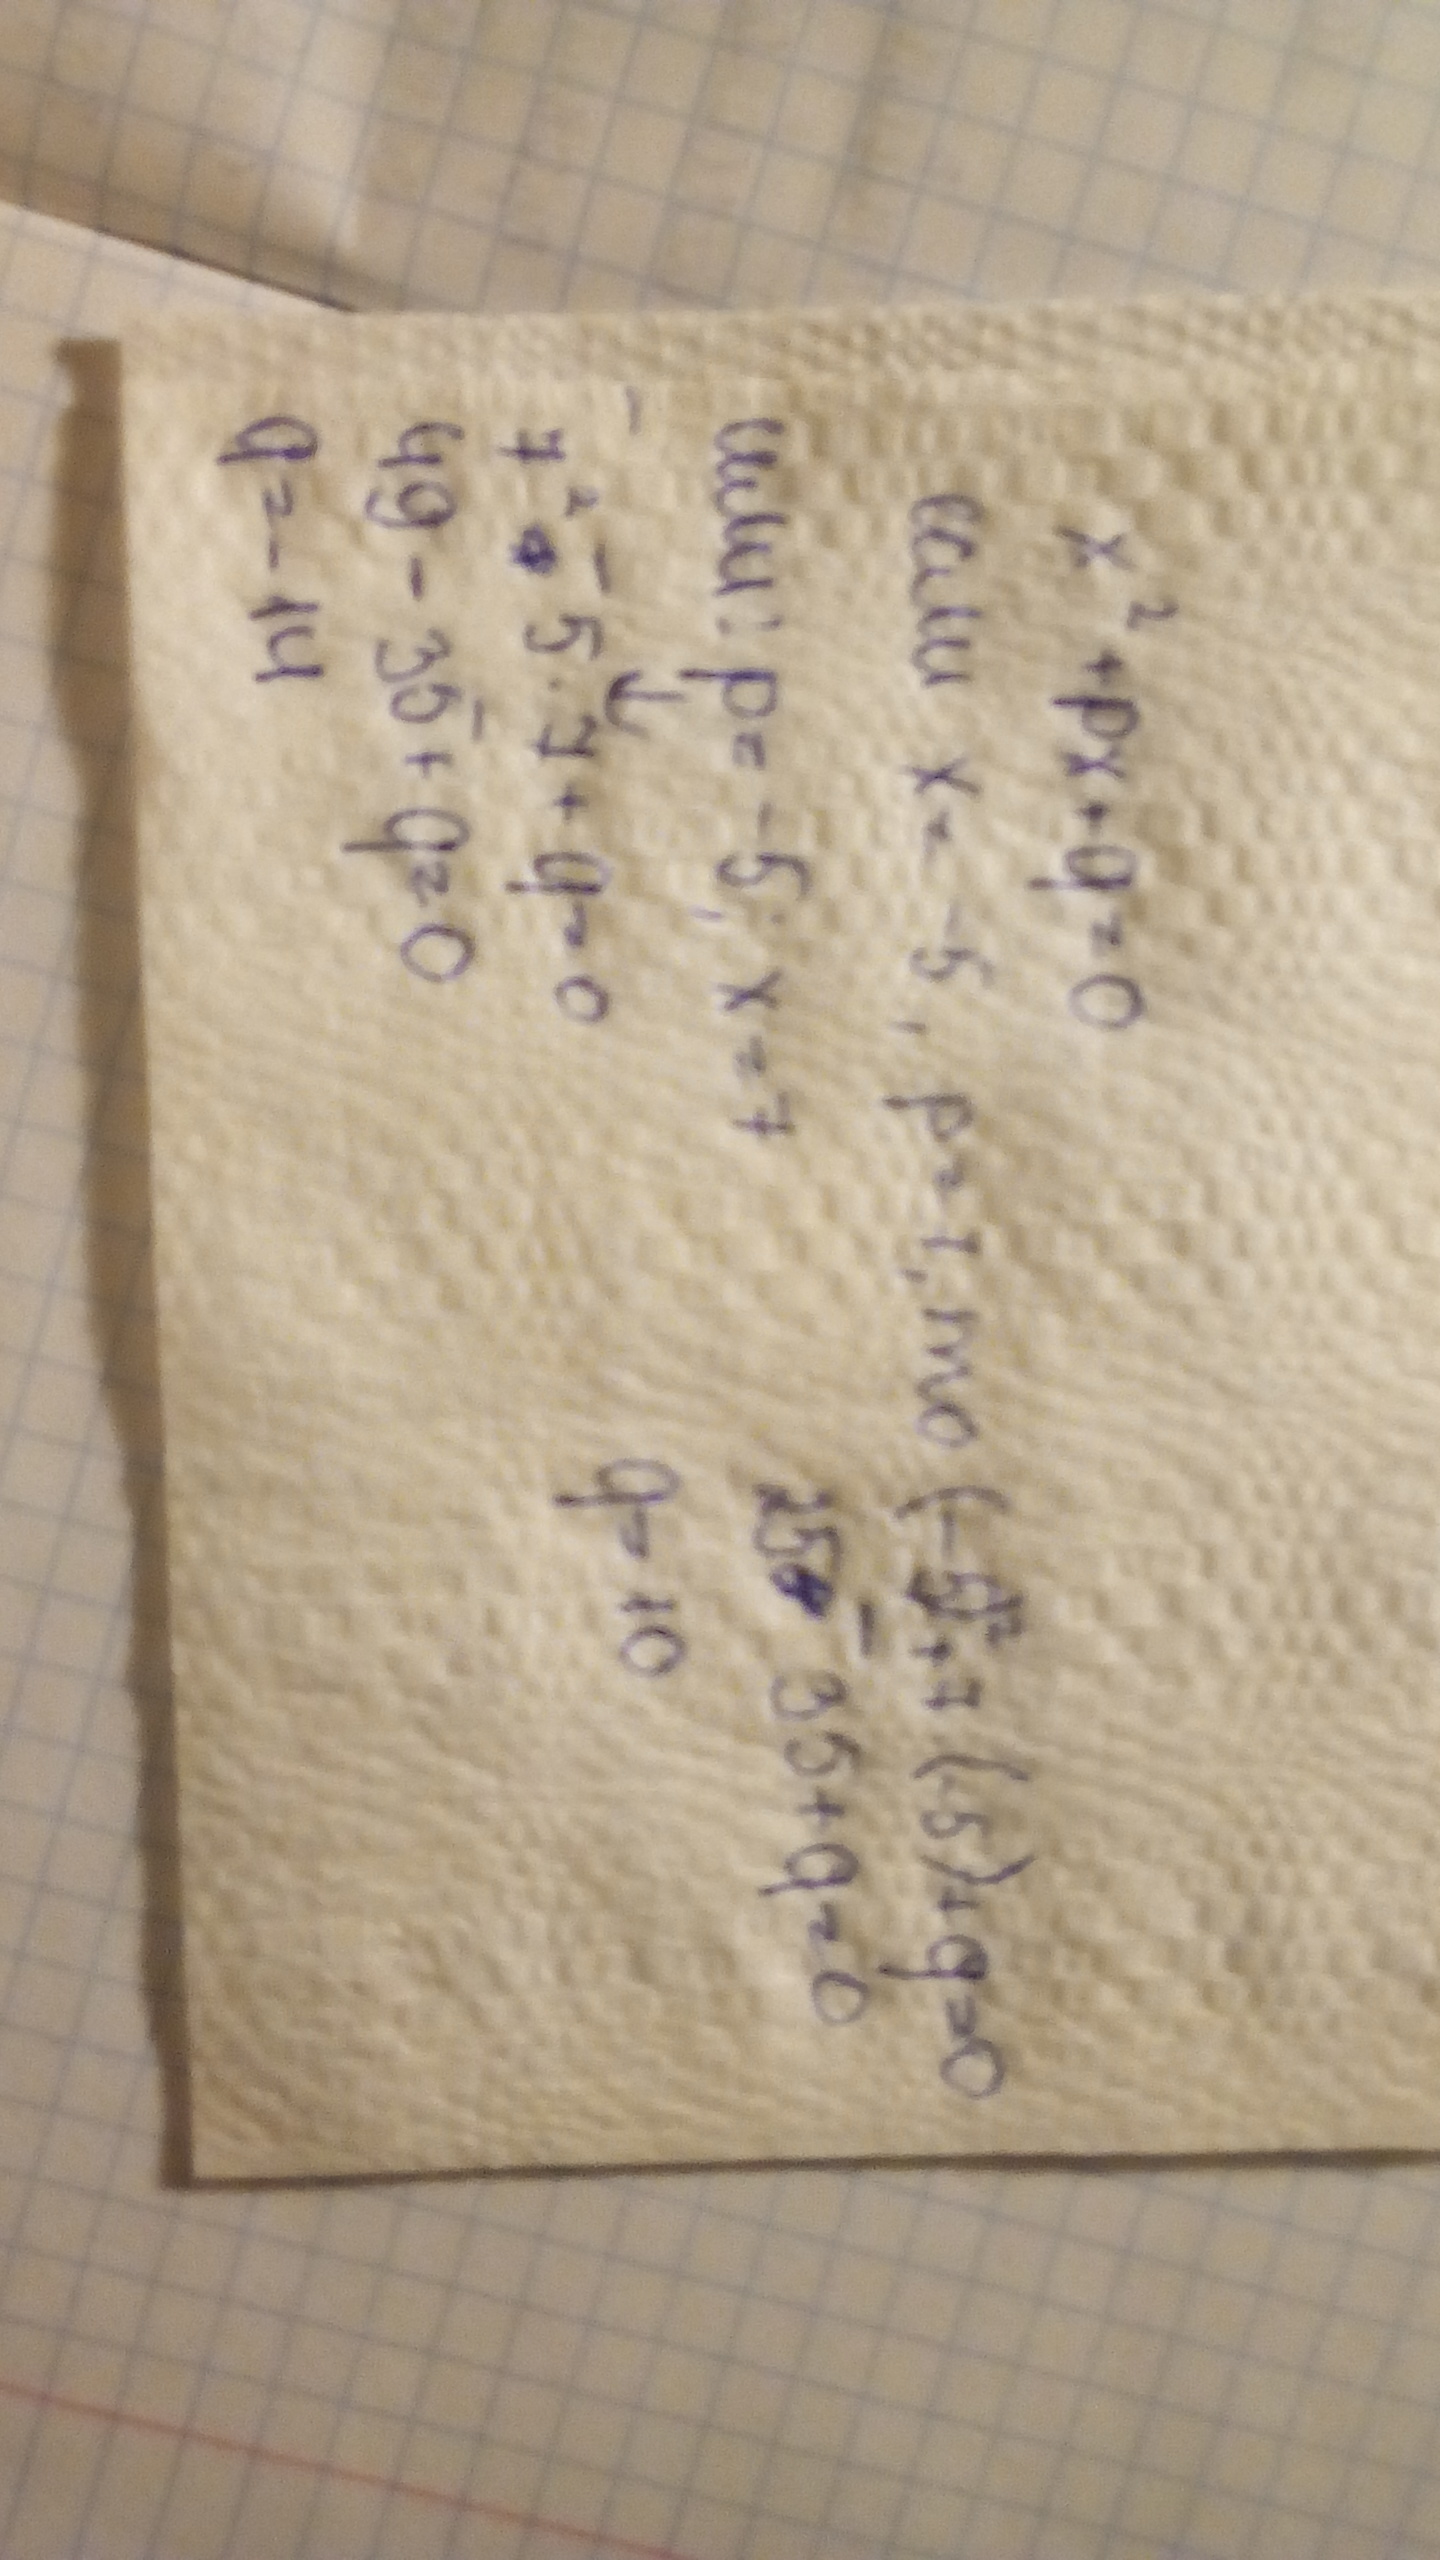 x² + px + q = 0
если x = -5, p = 7, то (-5)² + 7 (-5) + q = 0
25 - 35 + q = 0
q = 10
или: p = -5; x = 7
7² - 5 · 7 + q = 0
49 - 35 + q = 0
q = -14